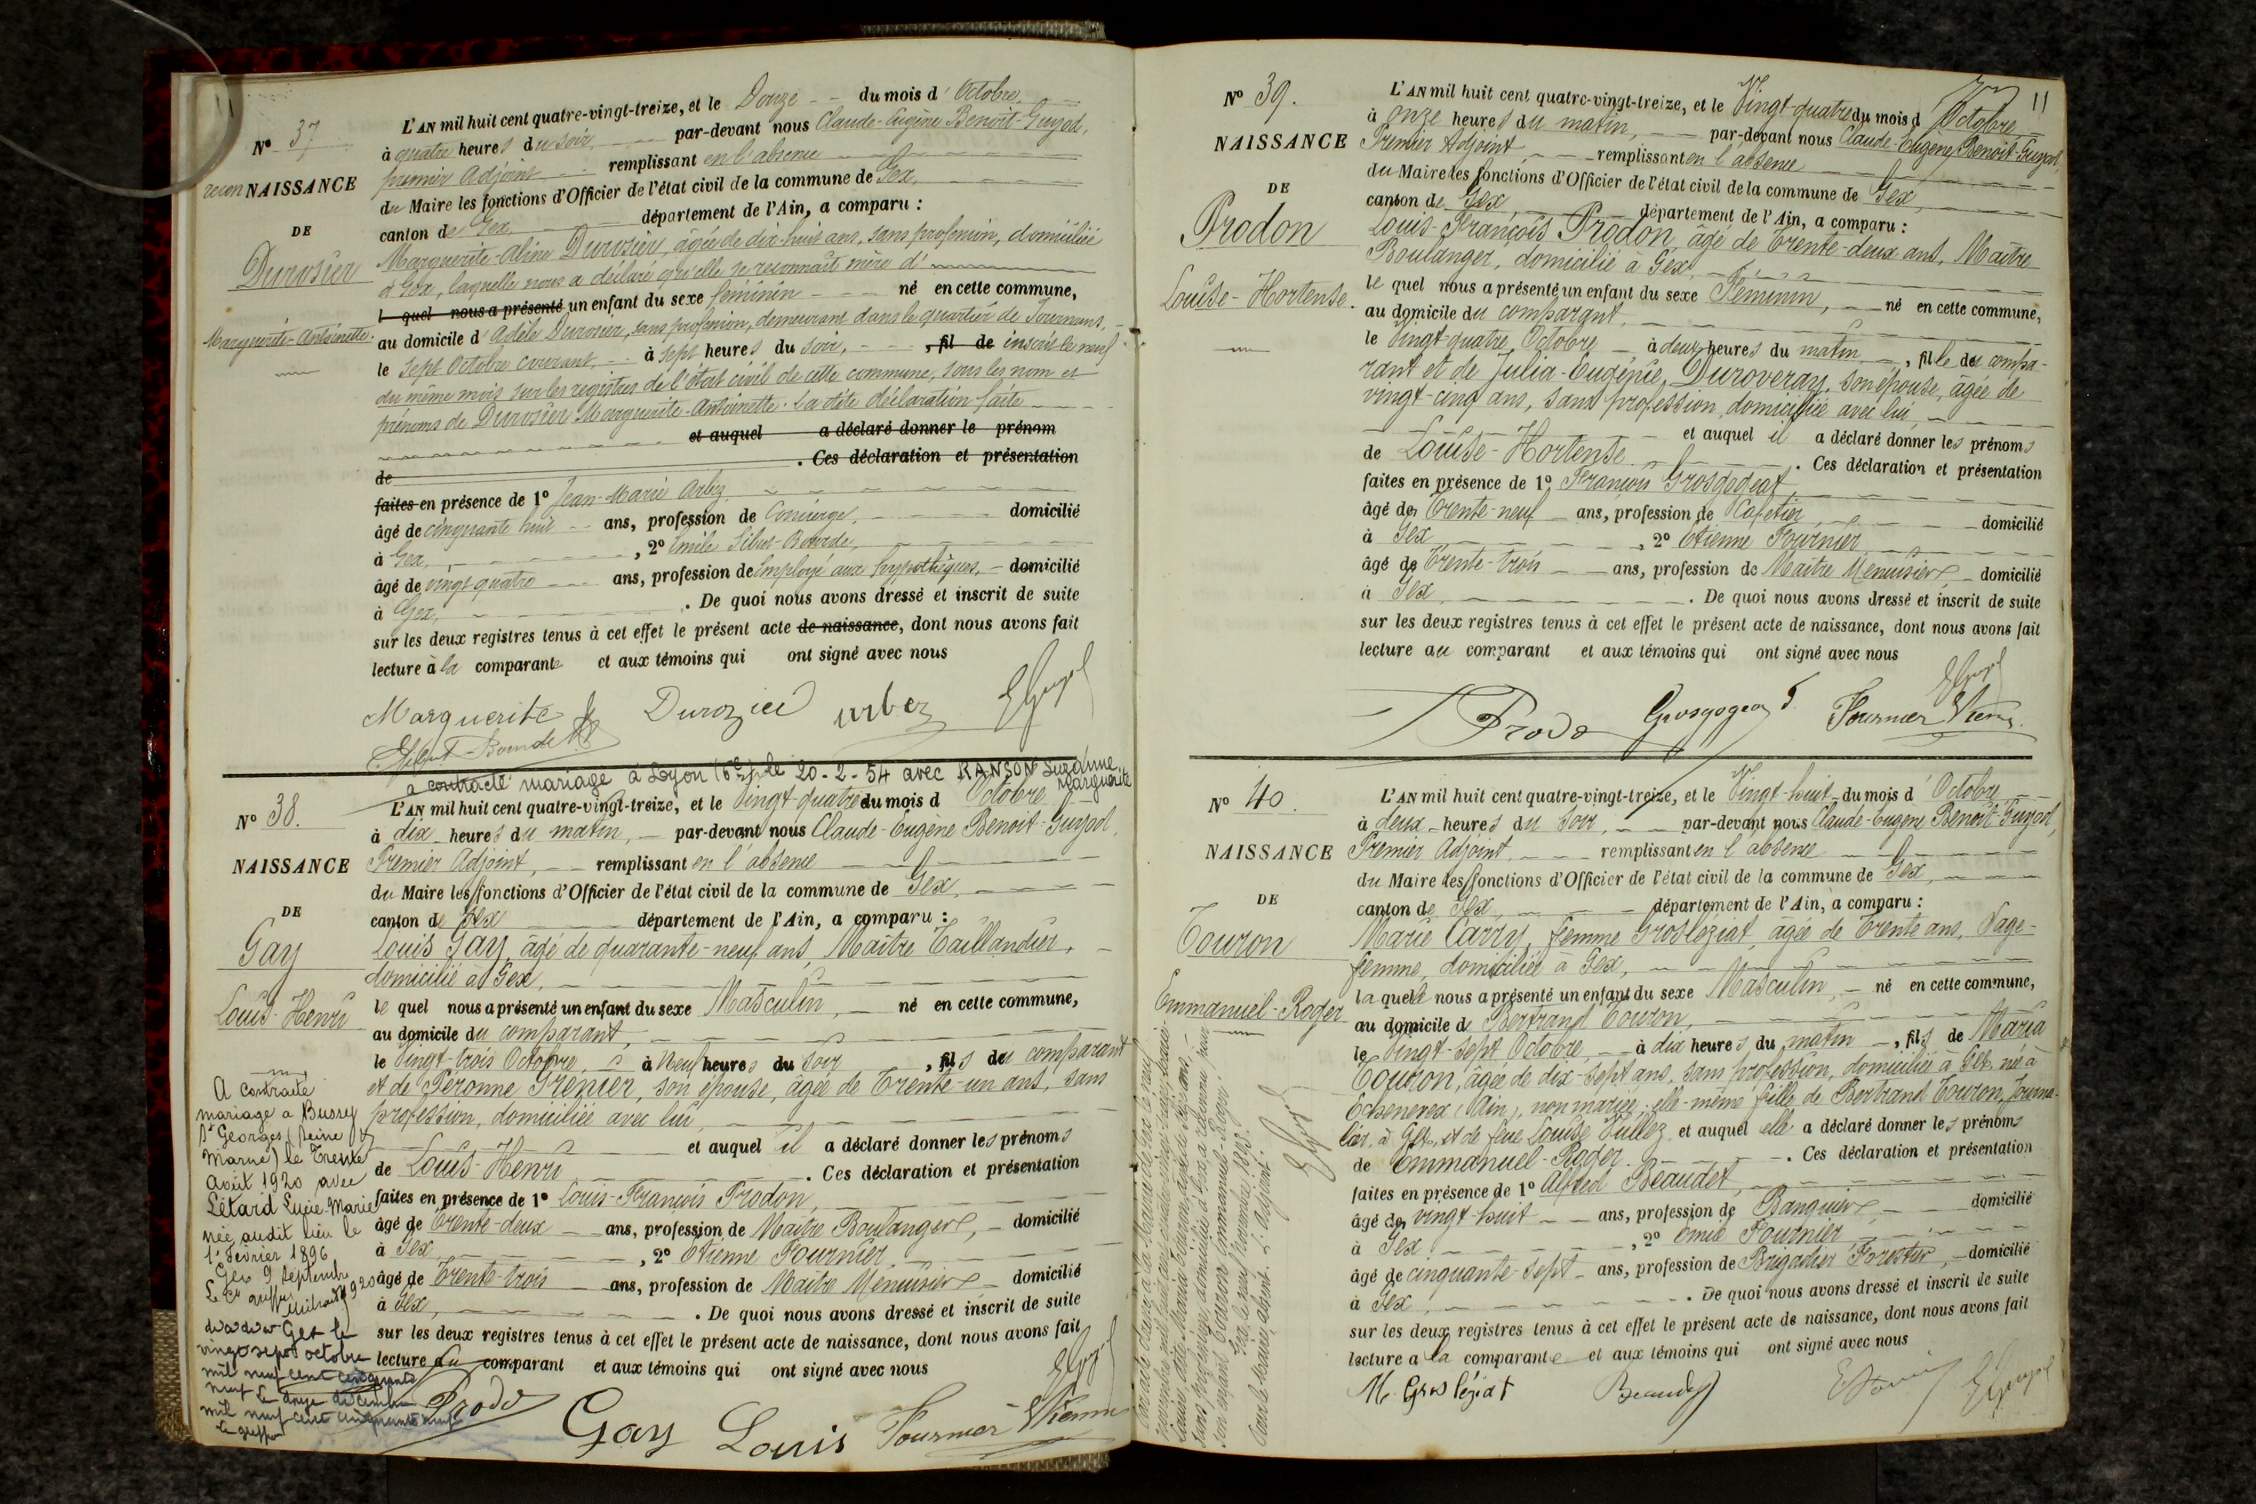 N° 37
recon NAISSANCE
DE
Durosier
Marguerite-Antoinette.
L'AN mil huit cent quatre-vingt-treize, et le Douze du mois d'Octobre,
à quatre heures du soir, par-devant nous Claude-Eugène Benoit-Guyod,
premier Adjoint remplissant en l'absence
du Maire les fonctions d'Officier de l'état civil de la commune de Gex,
canton de Gex, département de l'Ain, a comparu :
Marguerite-Aline Durosier, âgée de dix-huit ans, sans profession, domiciliée
à Gex, laquelle nous a déclaré qu'elle se reconnaît mère d'
l quel nous a présenté un enfant du sexe féminin né en cette commune,
au domicile d'Adèle Durosier, sans profession, demeurant dans le quartier de Tournans,
le sept Octobre courant, à sept heures du soir, , fil de inscrit le neuf
du même mois sur les registres de l'état civil de cette commune, sous les nom et
prénoms de Durosier Marguerite-Antoinette. La dite déclaration faite
et auquel a déclaré donner le prénom
de . Ces déclaration et présentation
faites en présence de 1° Jean-Marie Arbez
âgé de cinquante huit ans, profession de Concierge, domicilié
à Gex, , 2° Emile Sibut-Bourde,
âgé de vingt quatre ans, profession de Employé aux hypothèques, domicilié
à Gex, . De quoi nous avons dressé et inscrit de suite
sur les deux registres tenus à cet effet le présent acte de naissance, dont nous avons fait
lecture à la comparante et aux témoins qui ont signé avec nous
Marguerite Durozier Arbez EGuyod
Sibut-Bourde
a contracté mariage à Lyon (6e) le 20-2-54 avec RANSON Suzanne
Marguerite
N° 38.
NAISSANCE
DE
Gay
Louis-Henri
L'AN mil huit cent quatre-vingt-treize, et le Vingt-quatre du mois d Octobre
à dix heures du matin, par-devant nous Claude-Eugène Benoit-Guyod,
Premier Adjoint, remplissant en l'absence
du Maire les fonctions d'Officier de l'état civil de la commune de Gex,
canton de Gex département de l'Ain, a comparu :
Louis Gay, âgé de quarante-neuf ans, Maître Taillandier,
domicilié à Gex,
le quel nous a présenté un enfant du sexe Masculin, né en cette commune,
au domicile du comparant,
le Vingt-trois Octobre, à Neuf heures du soir , fils du comparant
et de Péronne Grenier, son épouse, âgée de Trente-un ans, sans
profession, domiciliée avec lui,
et auquel il a déclaré donner les prénoms
de Louis-Henri . Ces déclaration et présentation
faites en présence de 1° Louis-François Prodon,
âgé de Trente-deux ans, profession de Maître Boulanger, domicilié
à Gex , 2° Etienne Fournier,
âgé de Trente-trois ans, profession de Maître Menuisier domicilié
à Gex, . De quoi nous avons dressé et inscrit de suite
sur les deux registres tenus à cet effet le présent acte de naissance, dont nous avons fait
lecture au comparant et aux témoins qui ont signé avec nous
Prodon Gay Louis Fournier Etienne EGuyod
A contracté
mariage à Bussy
St Georges (Seine et
Marne) le Trente
Août 1920 avec
Létard Lucie-Marie
née audit lieu le
1er Février 1896
Gex 9 septembre 1920
Le greffier
Gex le
vingt sept octobre
mil neuf cent cinquante
neuf le douze décembre
mil neuf cent cinquante neuf
le greffier
N° 39.
11
NAISSANCE
DE
Prodon
Louise-Hortense.
L'AN mil huit cent quatre-vingt-treize, et le Vingt-quatre du mois d'Octobre
à onze heures du matin, par-devant nous Claude-Eugène Benoit-Guyod,
Premier Adjoint, remplissant en l'absence
du Maire les fonctions d'Officier de l'état civil de la commune de Gex,
canton de Gex département de l'Ain, a comparu :
Louis-François Prodon, âgé de Trente-deux ans, Maître
Boulanger, domicilié à Gex,
le quel nous a présenté un enfant du sexe Féminin, né en cette commune,
au domicile du comparant,
le Vingt-quatre Octobre à deux heures du matin , fille du compa-
rant et de Julia-Eugénie Duroveray, son épouse, âgée de
vingt-cinq ans, sans profession, domiciliée avec lui,
et auquel il a déclaré donner les prénoms
de Louise-Hortense . Ces déclaration et présentation
faites en présence de 1° François Grosgogeat
âgé de Trente-neuf ans, profession de Cafetier domicilié
à Gex , 2° Etienne Fournier
âgé de Trente-trois ans, profession de Maître Menuisier domicilié
à Gex . De quoi nous avons dressé et inscrit de suite
sur les deux registres tenus à cet effet le présent acte de naissance, dont nous avons fait
lecture au comparant et aux témoins qui ont signé avec nous
Prodon Grosgogeat Fournier Etienne EGuyod
N° 40.
NAISSANCE
DE
Touron
Emmanuel-Roger
L'AN mil huit cent quatre-vingt-treize, et le Vingt-huit du mois d'Octobre
à deux heures du soir, par-devant nous Claude-Eugène Benoit-Guyod,
Premier Adjoint, remplissant en l'absence
du Maire les fonctions d'Officier de l'état civil de la commune de Gex,
canton de Gex, département de l'Ain, a comparu :
Marie Carry, femme Grosléziat, âgée de Trente ans, Sage-
femme, domiciliée à Gex,
la quelle nous a présenté un enfant du sexe Masculin, né en cette commune,
au domicile de Bertrand Touron,
le Vingt-sept Octobre, à dix heures du matin , fils de Maria
Touron, âgée de dix-sept ans, sans profession, domiciliée à Gex, née à
Echenevex (Ain), non mariée; elle-même fille de Bertrand Touron, Journa-
lier, à Gex, et de feue Louise Jullez et auquel elle a déclaré donner les prénoms
de Emmanuel-Roger . Ces déclaration et présentation
faites en présence de 1° Alfred Beaudet,
âgé de vingt-huit ans, profession de Banquier domicilié
à Gex , 2° Emile Fournier
âgé de cinquante-sept ans, profession de Brigadier Forestier, domicilié
à Gex, . De quoi nous avons dressé et inscrit de suite
sur les deux registres tenus à cet effet le présent acte de naissance, dont nous avons fait
lecture à la comparante et aux témoins qui ont signé avec nous
M. Grosléziat Beaudet EFournier EGuyod
son enfant Touron Emmanuel-Roger.
Gex le neuf Novembre 1893.
Pour le Maire absent: L'Adjoint.
EGuyod